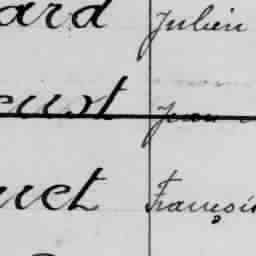 ard Julien
eust Jean
uet François